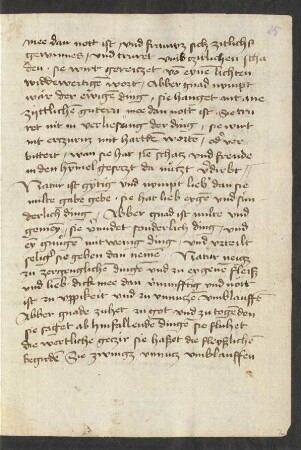 mee dan nott ist / und frauwz sich zitlichs
gewinnes / und trurt umb zitlichen scha
den / sie wirt gereiczet vo eyne lichten
widderwertige wort / Abber gnad nympt
war der ewige ding / sie hanget nit ane
zittlichen gutern / mee dan nott ist / Sie tru
ret nit in verliesung der ding / sie wirt
nit erzurnt mit hartte worte / od ver
bittert / wan sie hat ire schacz und freude
in den hymel geseczt da nichtz verdirbt
Natur ist gytig und nympt lieb dan sie
milte gabe gebe / sie hat lieb eygen und sun
derlich ding / Abber gnad ist milte und
gemey / sie vermidet sonderlich ding / und
er gnuge mit wenig ding / und urteilt
selig sie geben dan neme Natur neigt
zu zergengliche dinge und zu eygene fleiß
und lieb dick mee dan vernunfftig und nott
ist zu uppikeit und zu unnutze umblauffē
Abber gnade zuhet zu got und zu togeden
sie scheet ab hinfallende dinge sie fluhet
die wertliche gezir sie hasset die fleyschlichen
begirde Sie zwingt unnutz umblauffen